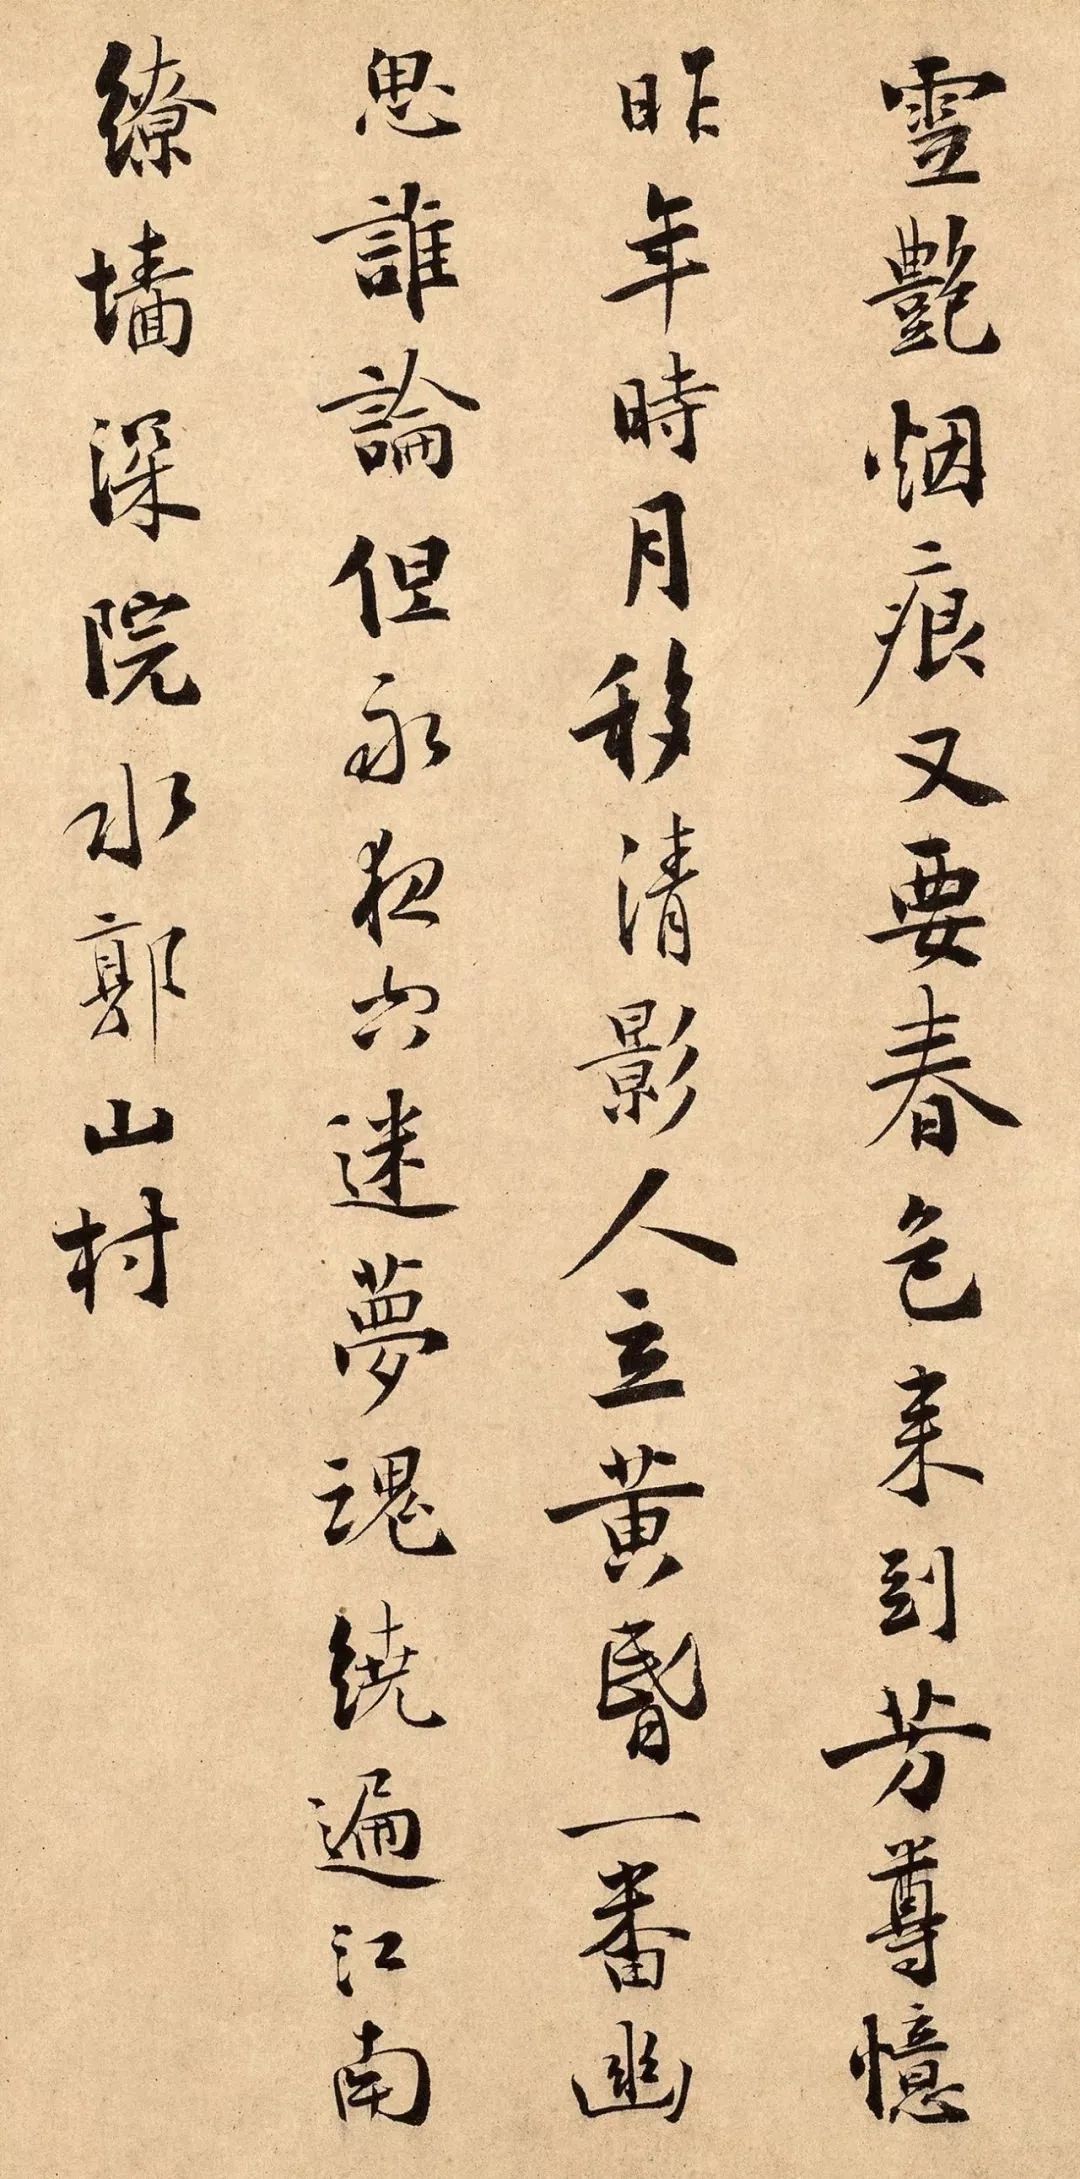 雪艷烟痕又要春色来到芳尊憶
昨年時月移清影人立黄昏一番幽
思誰論但永夜空迷夢魂繞遍江南
繚墻深院水郭山村